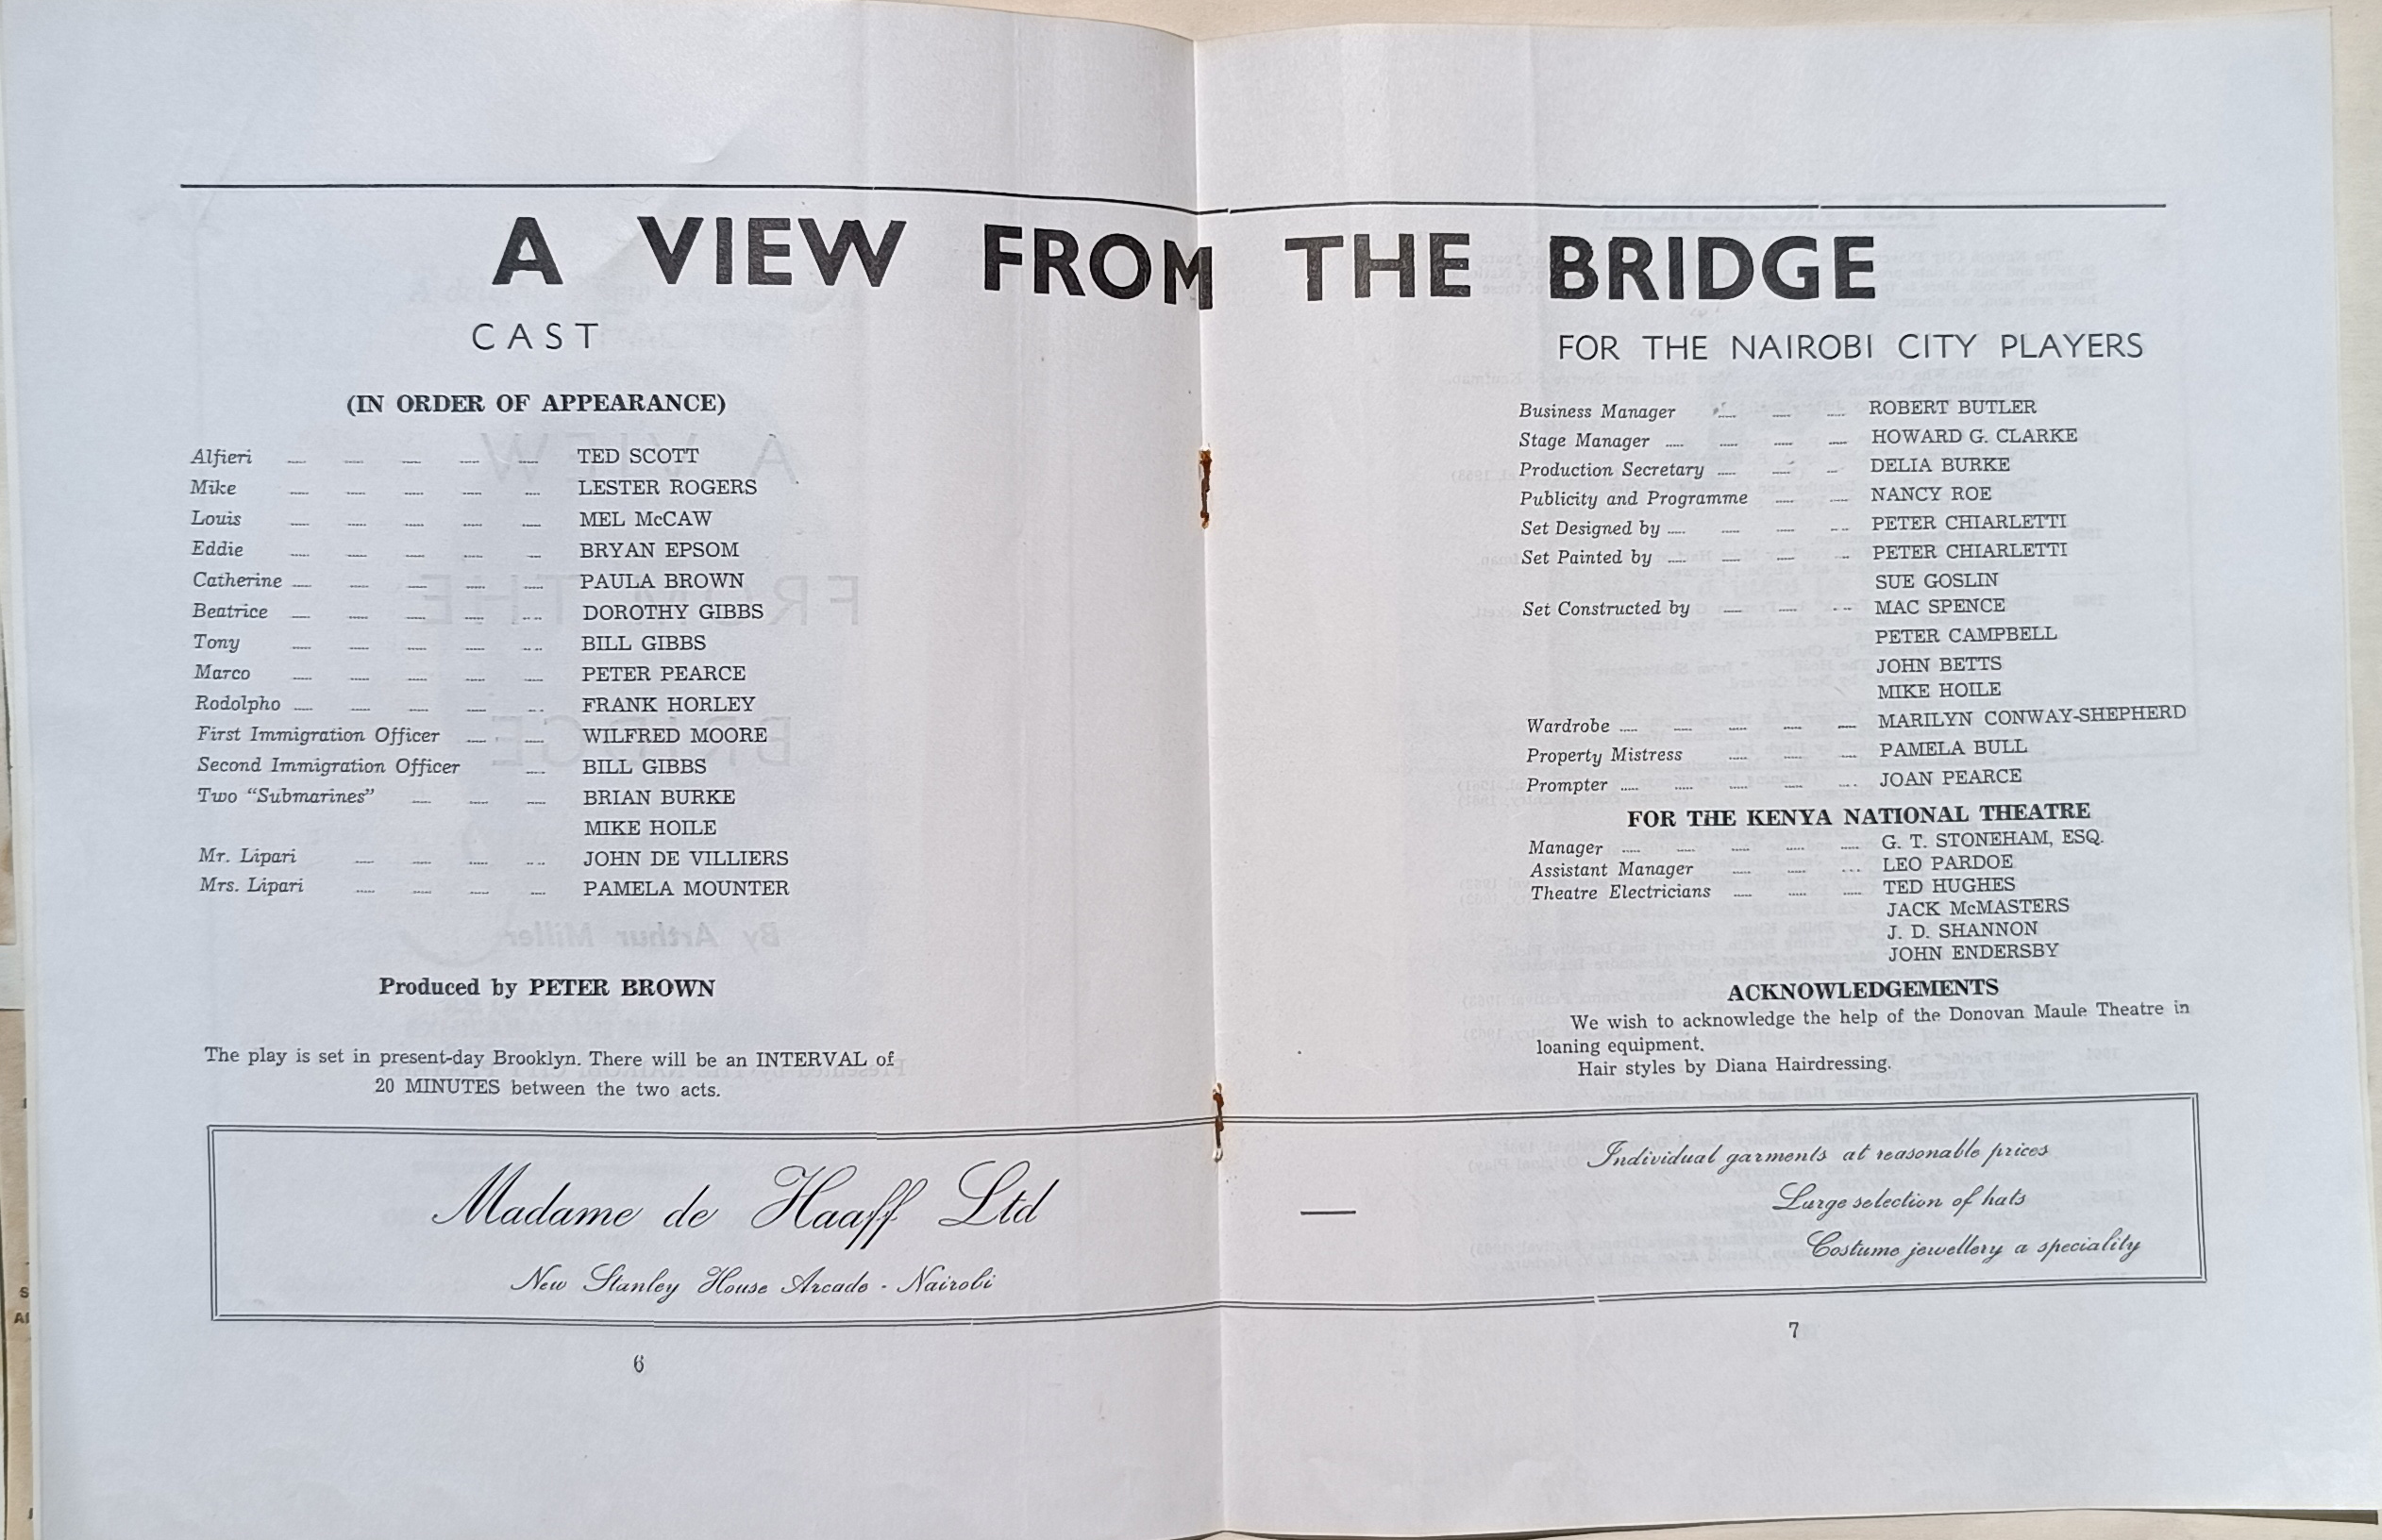 A VIEW FROM THE BRIDGE
CAST
(IN ORDER OF APPEARANCE)
Alfieri .... .... .... .... .... TED SCOTT
Mike .... .... .... .... .... LESTER ROGERS
Louis .... .... .... .... .... MEL McCAW
Eddie .... .... .... .... .... BRYAN EPSOM
Catherine .... .... .... .... .... PAULA BROWN
Beatrice .... .... .... .... .... DOROTHY GIBBS
Tony .... .... .... .... .... BILL GIBBS
Marco .... .... .... .... .... PETER PEARCE
Rodolpho .... .... .... .... .... FRANK HORLEY
First Immigration Officer .... .... WILFRED MOORE
Second Immigration Officer .... BILL GIBBS
Two "Submarines" .... .... .... BRIAN BURKE
MIKE HOILE
Mr. Lipari .... .... .... .... JOHN DE VILLIERS
Mrs. Lipari .... .... .... .... PAMELA MOUNTER
Produced by PETER BROWN
The play is set in present-day Brooklyn. There will be an INTERVAL of
20 MINUTES between the two acts.
FOR THE NAIROBI CITY PLAYERS
Business Manager .... .... .... ROBERT BUTLER
Stage Manager .... .... .... .... HOWARD G. CLARKE
Production Secretary .... .... .... DELIA BURKE
Publicity and Programme .... .... NANCY ROE
Set Designed by .... .... .... .... PETER CHIARLETTI
Set Painted by .... .... .... .... PETER CHIARLETTI
SUE GOSLIN
Set Constructed by .... .... .... MAC SPENCE
PETER CAMPBELL
JOHN BETTS
MIKE HOILE
Wardrobe .... .... .... .... .... MARILYN CONWAY-SHEPHERD
Property Mistress .... .... .... PAMELA BULL
Prompter .... .... .... .... .... JOAN PEARCE
FOR THE KENYA NATIONAL THEATRE
Manager .... .... .... .... .... G. T. STONEHAM, ESQ.
Assistant Manager .... .... .... LEO PARDOE
Theatre Electricians .... .... .... TED HUGHES
JACK McMASTERS
J. D. SHANNON
JOHN ENDERSBY
ACKNOWLEDGEMENTS
We wish to acknowledge the help of the Donovan Maule Theatre in
loaning equipment.
Hair styles by Diana Hairdressing.
Madame de Haaff Ltd —
New Stanley House Arcade - Nairobi
Individual garments at reasonable prices
Large selection of hats
Costume jewellery a speciality
6
7